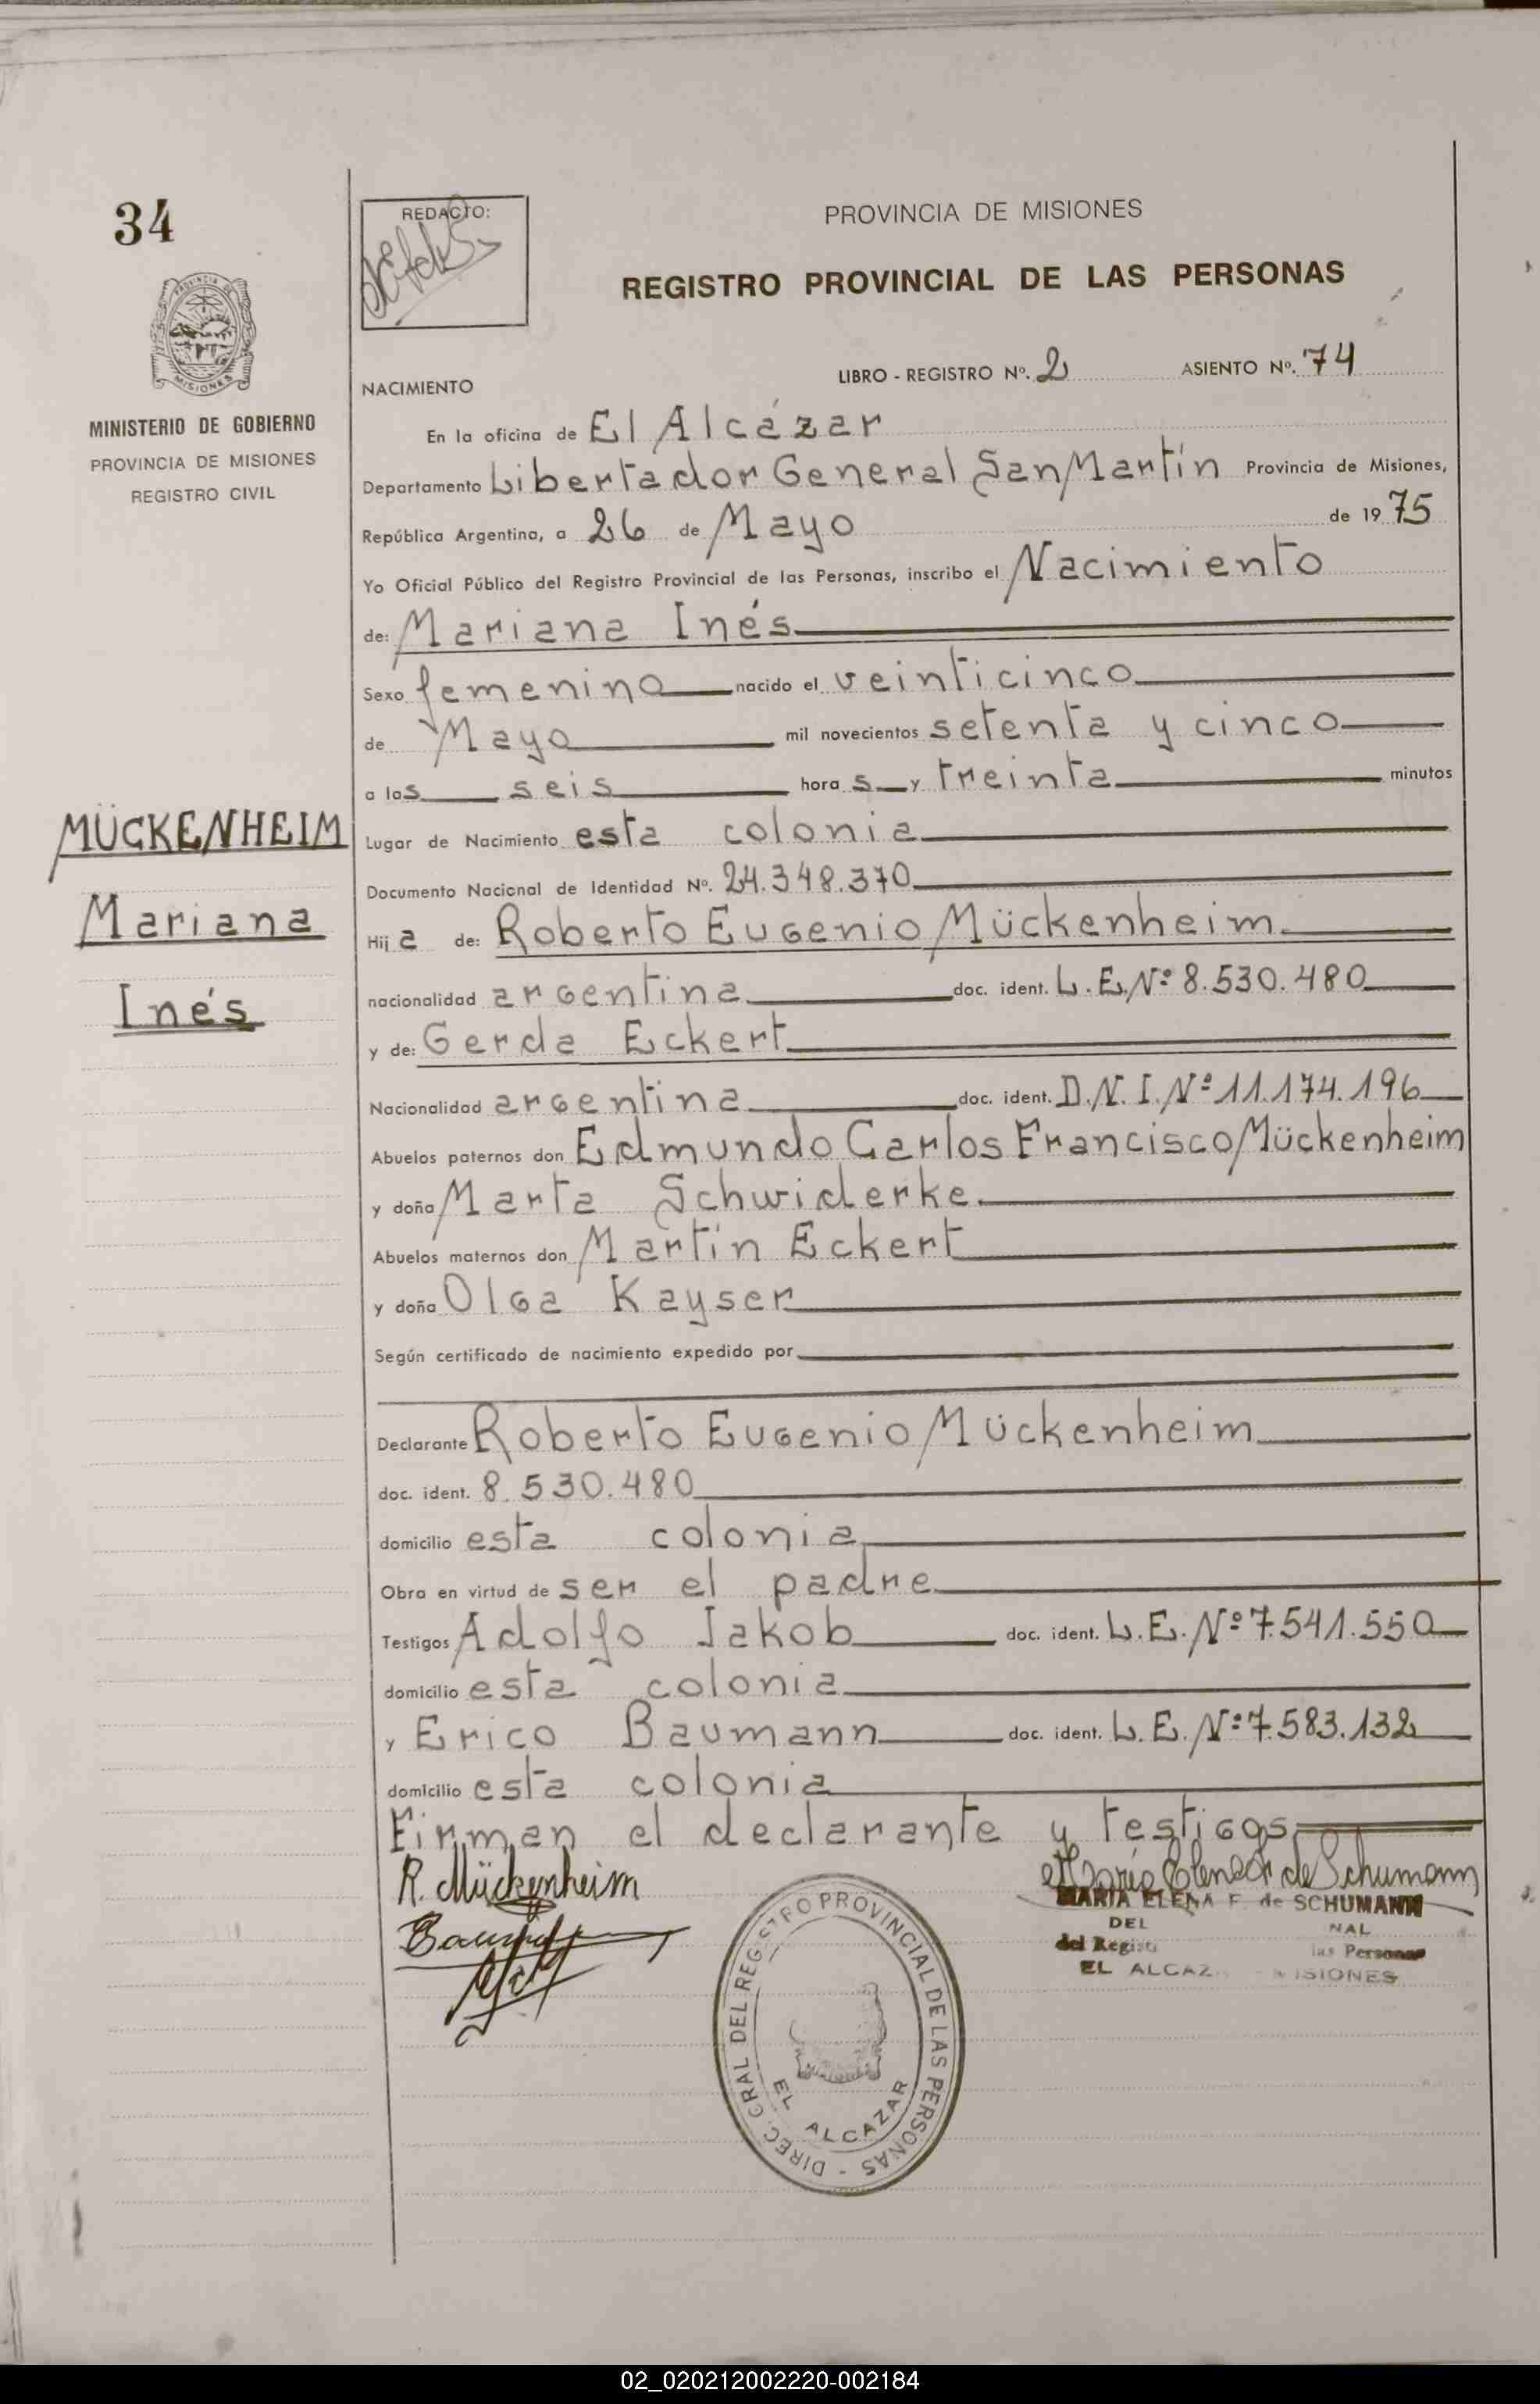 34
REDACTO:
PROVINCIA DE MISIONES
REGISTRO PROVINCIAL DE LAS PERSONAS
PROVINCIA DE
MISIONES
MINISTERIO DE GOBIERNO
PROVINCIA DE MISIONES
REGISTRO CIVIL
NACIMIENTO
LIBRO - REGISTRO Nº. 2 ASIENTO Nº. 74
En la oficina de El Alcázar
Departamento Libertador General San Martín Provincia de Misiones,
República Argentina, a 26 de Mayo de 1975
Yo Oficial Público del Registro Provincial de las Personas, inscribo el Nacimiento
de: Mariana Inés
Sexo femenino nacido el veinticinco
de Mayo mil novecientos setenta y cinco
a las seis horas y treinta minutos
MÜCKENHEIM
Mariana
Inés
Lugar de Nacimiento esta colonia
Documento Nacional de Identidad Nº. 24.348.370
Hija de: Roberto Eugenio Mückenheim
nacionalidad argentina doc. ident. L.E.Nº 8.530.480
y de: Gerda Eckert
Nacionalidad argentina doc. ident. D.N.I.Nº 11.174.196
Abuelos paternos don Edmundo Carlos Francisco Mückenheim
y doña Marta Schwiderke
Abuelos maternos don Martín Eckert
y doña Olga Kayser
Según certificado de nacimiento expedido por
Declarante Roberto Eugenio Mückenheim
doc. ident. 8.530.480
domicilio esta colonia
Obra en virtud de ser el padre
Testigos Adolfo Jakob doc. ident. L.E.Nº 7.541.550
domicilio esta colonia
y Erico Baumann doc. ident. L.E.Nº 7.583.132
domicilio esta colonia
Firman el declarante y testigos
R. Mückenheim
María Elena F. de Schumann
MARIA ELENA F. de SCHUMANN
DEL NAL
del Regist las Personas
EL ALCAZ MISIONES
DIREC. GRAL DEL REGISTRO PROVINCIAL DE LAS PERSONAS -
EL ALCAZAR
02_020212002220-002184